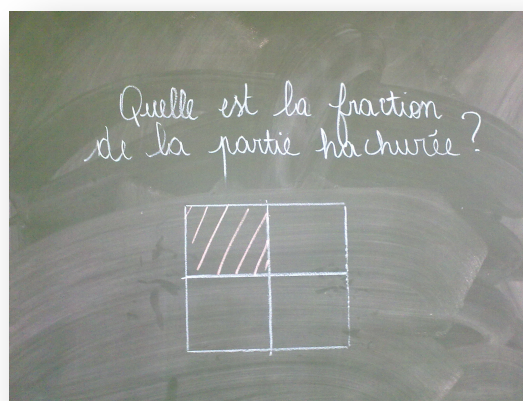 Quelle est la fraction
de la partie hachurée ?